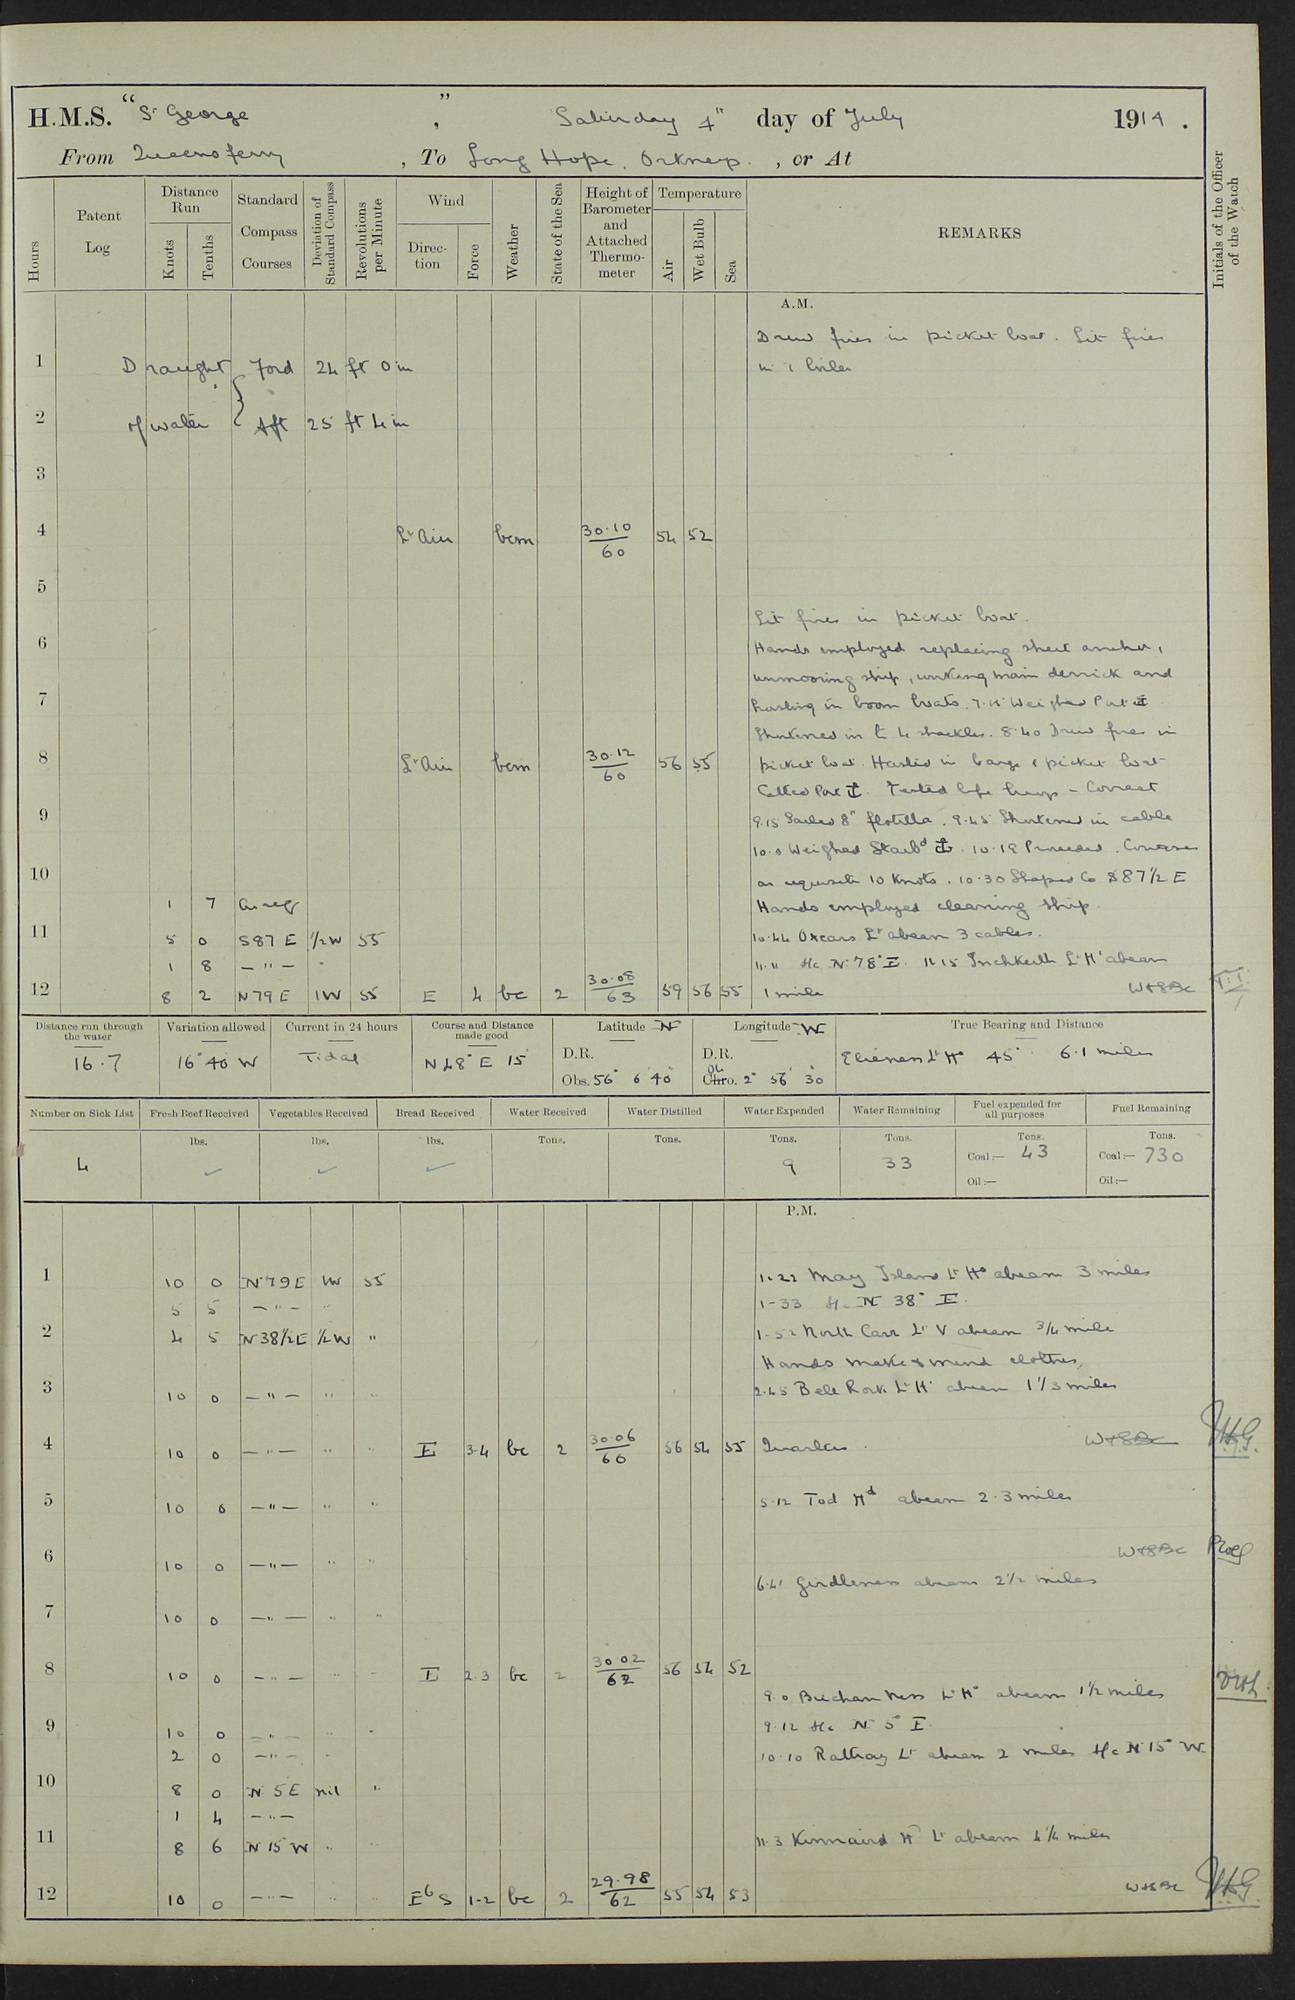 H.M.S. "St George", Saturday 4th day of July 1914.
From Queensferry, To Long Hope, Orkneys., or At
Hours
Patent Log
Distance Run
Knots
Tenths
Standard Compass Courses
Deviation of Standard Compass
Revolutions per Minute
Wind
Direction
Force
Weather
State of the Sea
Height of Barometer and Attached Thermometer
Temperature
Air
Wet Bulb
Sea
REMARKS
Initials of the Officer of the Watch
A.M.
Drew fires in picket boat. Lit fires
1 Draught Ford 24 ft 0 in in 1 boiler
2 of water Aft 25 ft 4 in
3
4 Lt Airs bcm 30.10/60 54 52
5
Lit fires in picket boat.
6 Hands employed replacing sheet anchor,
unmooring ship, working main derrick and
7 hoisting in boom boats. 7.15 Weighed Port ⚓
Shortened in to 4 shackles. 8.40 Drew fires in
8 Lt Airs bcm 30.12/60 56 55 picket boat. Hoisted in barge & picket boat
Catted Port ⚓. Tested life buoys - Correct
9 9.15 Sailed 8th flotilla. 9.45 Shortened in cable
10.0 Weighed Starbd ⚓. 10.19 Proceeded. Courses
10 as requisite 10 knots. 10.30 Shaped Co S 87 1/2 E
1 7 As req Hands employed cleaning ship.
11 5 0 S87 E 1/2W 55 10.44 Oxcars Lt abeam 3 cables.
1 8 — " — " 11.11 a/c N 78° E. 11.15 Inchkeith Lt H° abeam
12 8 2 N79E 1W 55 E 4 bc 2 30.08/63 59 56 55 1 mile
Distance run through the water 16.7
Variation allowed 16° 40 W
Current in 24 hours Tidal
Course and Distance made good N 48° E 15
Latitude N D.R. Obs. 56° 6 40
Longitude W D.R. Chro. 2° 56 30
True Bearing and Distance Elieness Lt H° 45° 6.1 miles
Number on Sick List 4
Fresh Beef Received lbs. ✓
Vegetables Received lbs. ✓
Bread Received lbs. ✓
Water Received Tons.
Water Distilled Tons.
Water Expended Tons. 9
Water Remaining Tons. 33
Fuel expended for all purposes Tons. Coal:— 43 Oil:—
Fuel Remaining Tons. Coal:— 730 Oil:—
P.M.
1 10 0 N79E 1W 55 1.22 May Island Lt H° abeam 3 miles
5 5 — " — " 1-33 a/c N 38° E.
2 4 5 N38 1/2E 1/2W " 1-52 North Carr Lt V abeam 3/4 mile
Hands make & mend clothes.
3 10 0 — " — " " 2.45 Bell Rock Lt H° abeam 1 1/3 miles
4 10 0 — " — " " E 3-4 bc 2 30.06/60 56 54 55 Quarters.
5 10 0 — " — " " 5.12 Tod Hd abeam 2.3 miles
6 10 0 — " — " "
6.41 Girdleness abeam 2 1/2 miles
7 10 0 — " — "
8 10 0 — " — " " E 2.3 bc 2 30.02/62 56 54 52
9.0 Buchan Ness Lt H° abeam 1 1/2 miles
9 10 0 — " — " " 9.12 a/c N 5 E.
2 0 — " — " 10.10 Rattray Lt abeam 2 miles a/c N 15° W.
10 8 0 N 5E nil "
1 4 — " —
11 8 6 N 15 W " " 11.3 Kinnaird Hd Lt abeam 4 1/4 miles
12 10 0 — " — " " E b S 1-2 bc 2 29.98/62 55 54 53